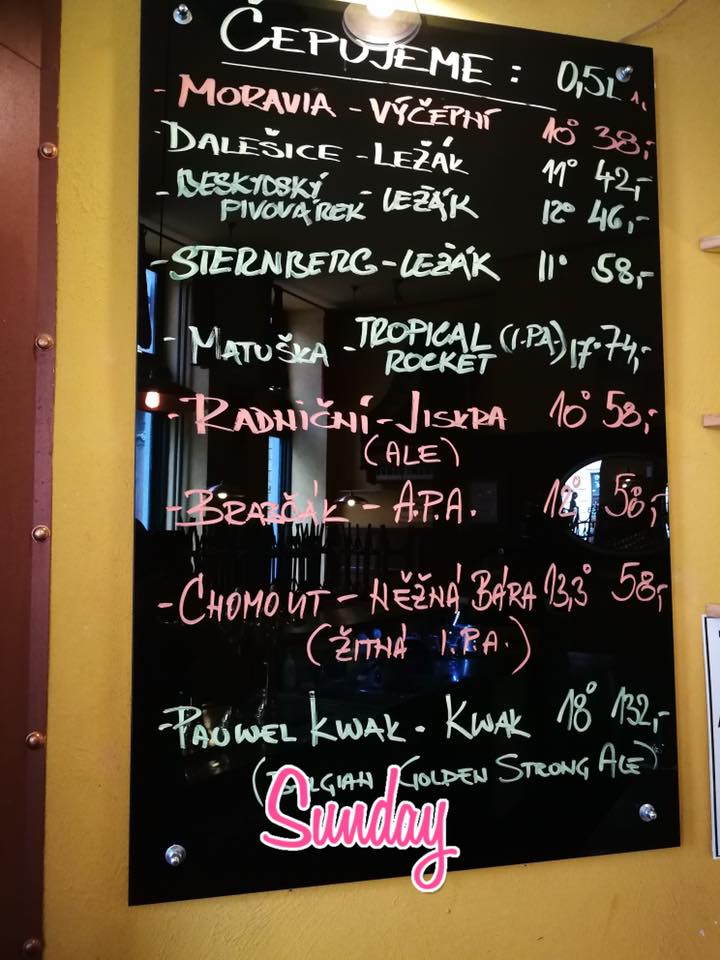 ČEPUJEME : 0,5L 1.
- MORAVIA - VÝČEPNÍ 10° 38,-
DALEŠICE - LEŽÁK 11° 42,-
- BESKYDSKÝ
PIVOVÁREK - LEŽÁK 12° 46,-
- STERNBERG - LEŽÁK 11° 58,-
- MATUŠKA - TROPICAL (I.PA.) 17° 74,-
ROCKET
- RADNIČNÍ - JISKRA 10° 58,-
(ALE)
- BRAZČÁK - A.P.A. 12° 58,-
- CHOMOUT - NĚŽNÁ BÁRA 13,3° 58,-
(ŽITNÁ I.P.A.)
- PAUWEL KWAK - KWAK 18° 132,-
(BELGIAN GOLDEN STRONG ALE)
Sunday